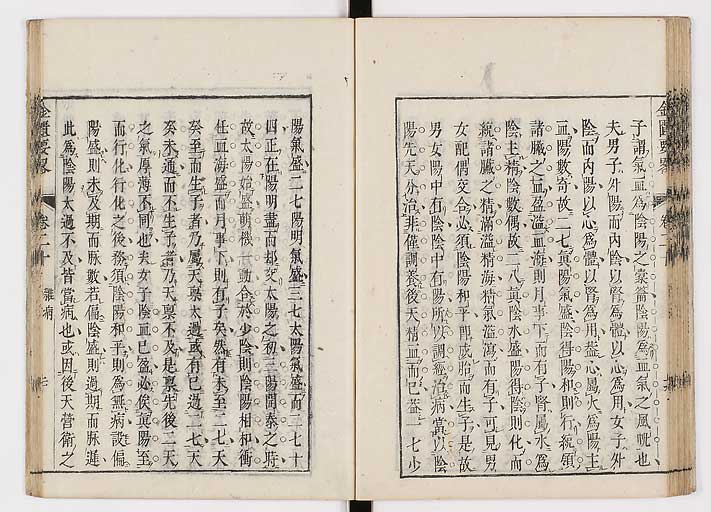 金匱要畧
卷二
子謂氣血為陰陽之橐籥陰陽為血氣之風也
夫男子外陽而內陰以腎為體以心為用女子外
陰而內陽以心為體以腎為用葢心屬火為陽主
血陽數奇故二七眞陽氣盛陰得陽和則行統領
諸臟之血盈溢血海則月事下而有子腎屬水為
陰主精陰數偶故二八眞陰水盛陽得陰則化而
統諸臟之精滿溢精海精氣溢瀉而有子可見男
女配偶交合必須陰陽和平即成胎而生子是故
男女陽中有陰陰中有陽所以調經治病當以陰
陽先天分治非僅調養後天精血而已葢一七少
陽氣盛二七陽明氣盛三七太陽氣盛而二七十
四正在陽明盡而却交太陽之初三陽開泰之時
故太陽始盛萌機一動合於少陰則陰陽相和衝
任血海盛而月事下則有子矣然有未至二七天
癸至而生子者乃屬天禀太過或有已過二七天
癸未通而不生子者乃天禀不及是禀先後二天
之氣厚薄不同也夫女子陰血已盈必俟眞陽至
而行化行化之後務須陰陽和平則為無病設偏
陽盛則未及期而脉數若偏陰盛則過期而脉遲
此為陰陽太過不及皆當病也或因後天營衛之
金匱要畧
卷二十
雜病